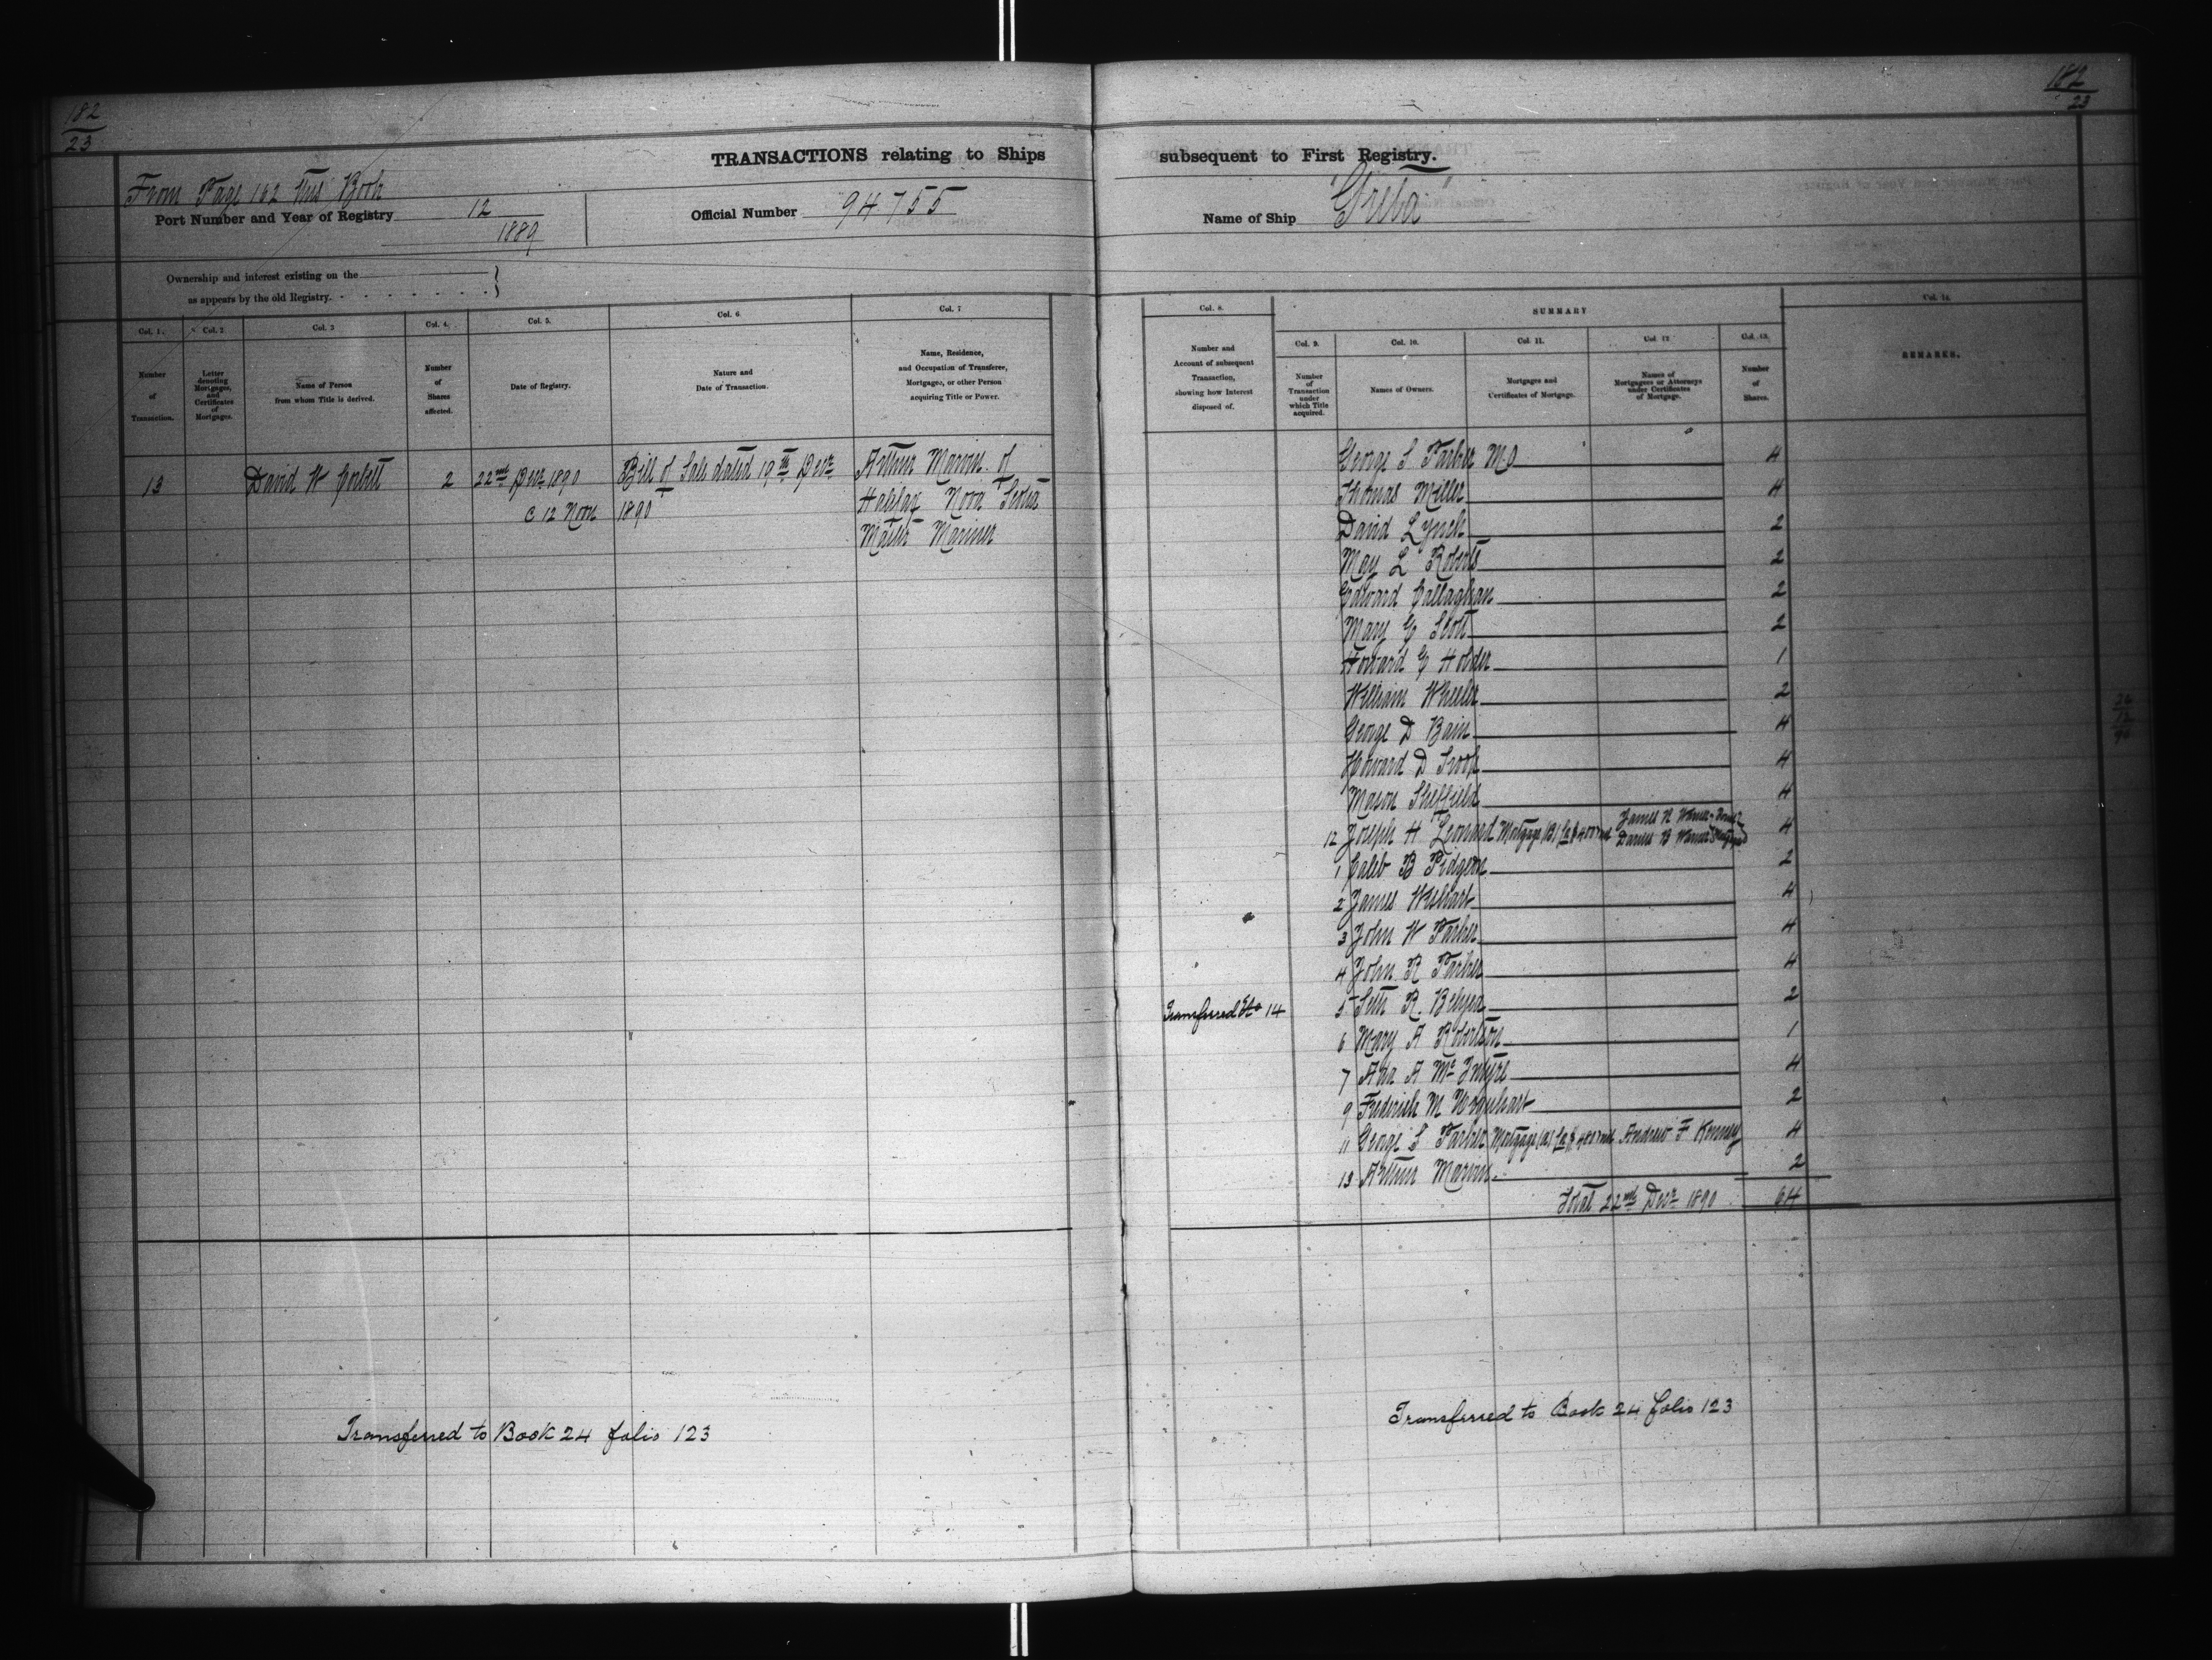 182
23
182
23
TRANSACTIONS relating to Ships
subsequent to First Registry.
From Page 162 this Book
Port Number and Year of Registry 12
1889
Official Number 94755
Name of Ship "Greta"
Ownership and interest existing on the
as appears by the old Registry.
Col. 1.
Number
of
Transaction.
Col. 2
Letter
denoting
Mortgages,
and
Certificates
of
Mortgages.
Col. 3
Name of Person
from whom Title is derived.
Col. 4.
Number
of
Shares
affected.
Col. 5.
Date of Registry.
Col. 6.
Nature and
Date of Transaction.
Col. 7
Name, Residence,
and Occupation of Transferee,
Mortgagee, or other Person
acquiring Title or Power.
13 David W Corbett 2 22nd Decr 1890 Bill of Sale dated 19th Decr Arthur Marvin of
@ 12 Noon 1890 Halifax Nova Scotia
Master Mariner
Transferred to Book 24 folio 123
Col. 8.
Number and
Account of subsequent
Transaction,
showing how Interest
disposed of.
SUMMARY
Col. 9.
Number
of
Transaction
under
which Title
acquired.
Col. 10.
Names of Owners.
Col. 11.
Mortgages and
Certificates of Mortgage.
Col. 12
Names of
Mortgagees or Attorneys
under Certificates
of Mortgage.
Col. 13.
Number
of
Shares.
Col. 14.
REMARKS.
George S Parker MO 4
Thomas Miller 4
David Lynch 2
May L Roberts 2
Edward Callaghan 2
Mary G Scott 2
Howard G Holder 1
William Wheeler 2
George D Bain 4
Howard D Troop 4
Mason Sheffield 4
12 Joseph H Leonard Mortgage (B) James N Warner 4
Daniel B Warner
1 Caleb B Pidgeon 2
2 James Wishart 4
3 John W Parker 4
4 John R Parker 4
Transferred No 14 5 Seth R. Belyea 2
6 Mary A Robertson 1
7 Ada A McIntyre 4
9 Frederick M Urquhart 2
11 George S Parker Mortgage (A) Andrew F Kenney 4
13 Arthur Marvin. 2
Total 22nd Decr 1890 64
Transferred to Book 24 folio 123